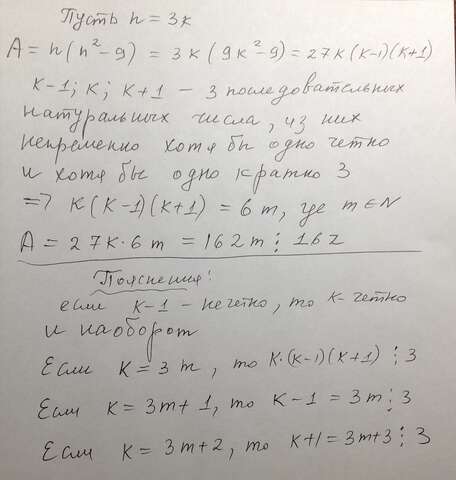 Пусть n = 3k
A = n(n²-9) = 3k(9k²-9) = 27k(k-1)(k+1)
k-1; k; k+1 - 3 последовательных
натуральных числа, из них
непременно хотя бы одно четно
и хотя бы одно кратно 3
=> k(k-1)(k+1) = 6m, где m∈N
A = 27k·6m = 162m ⋮ 162
Пояснения:
если k-1 - нечетно, то k- четно
и наоборот
Если k = 3m, то k·(k-1)(k+1) ⋮ 3
Если k = 3m+1, то k-1 = 3m ⋮ 3
Если k = 3m+2, то k+1 = 3m+3 ⋮ 3